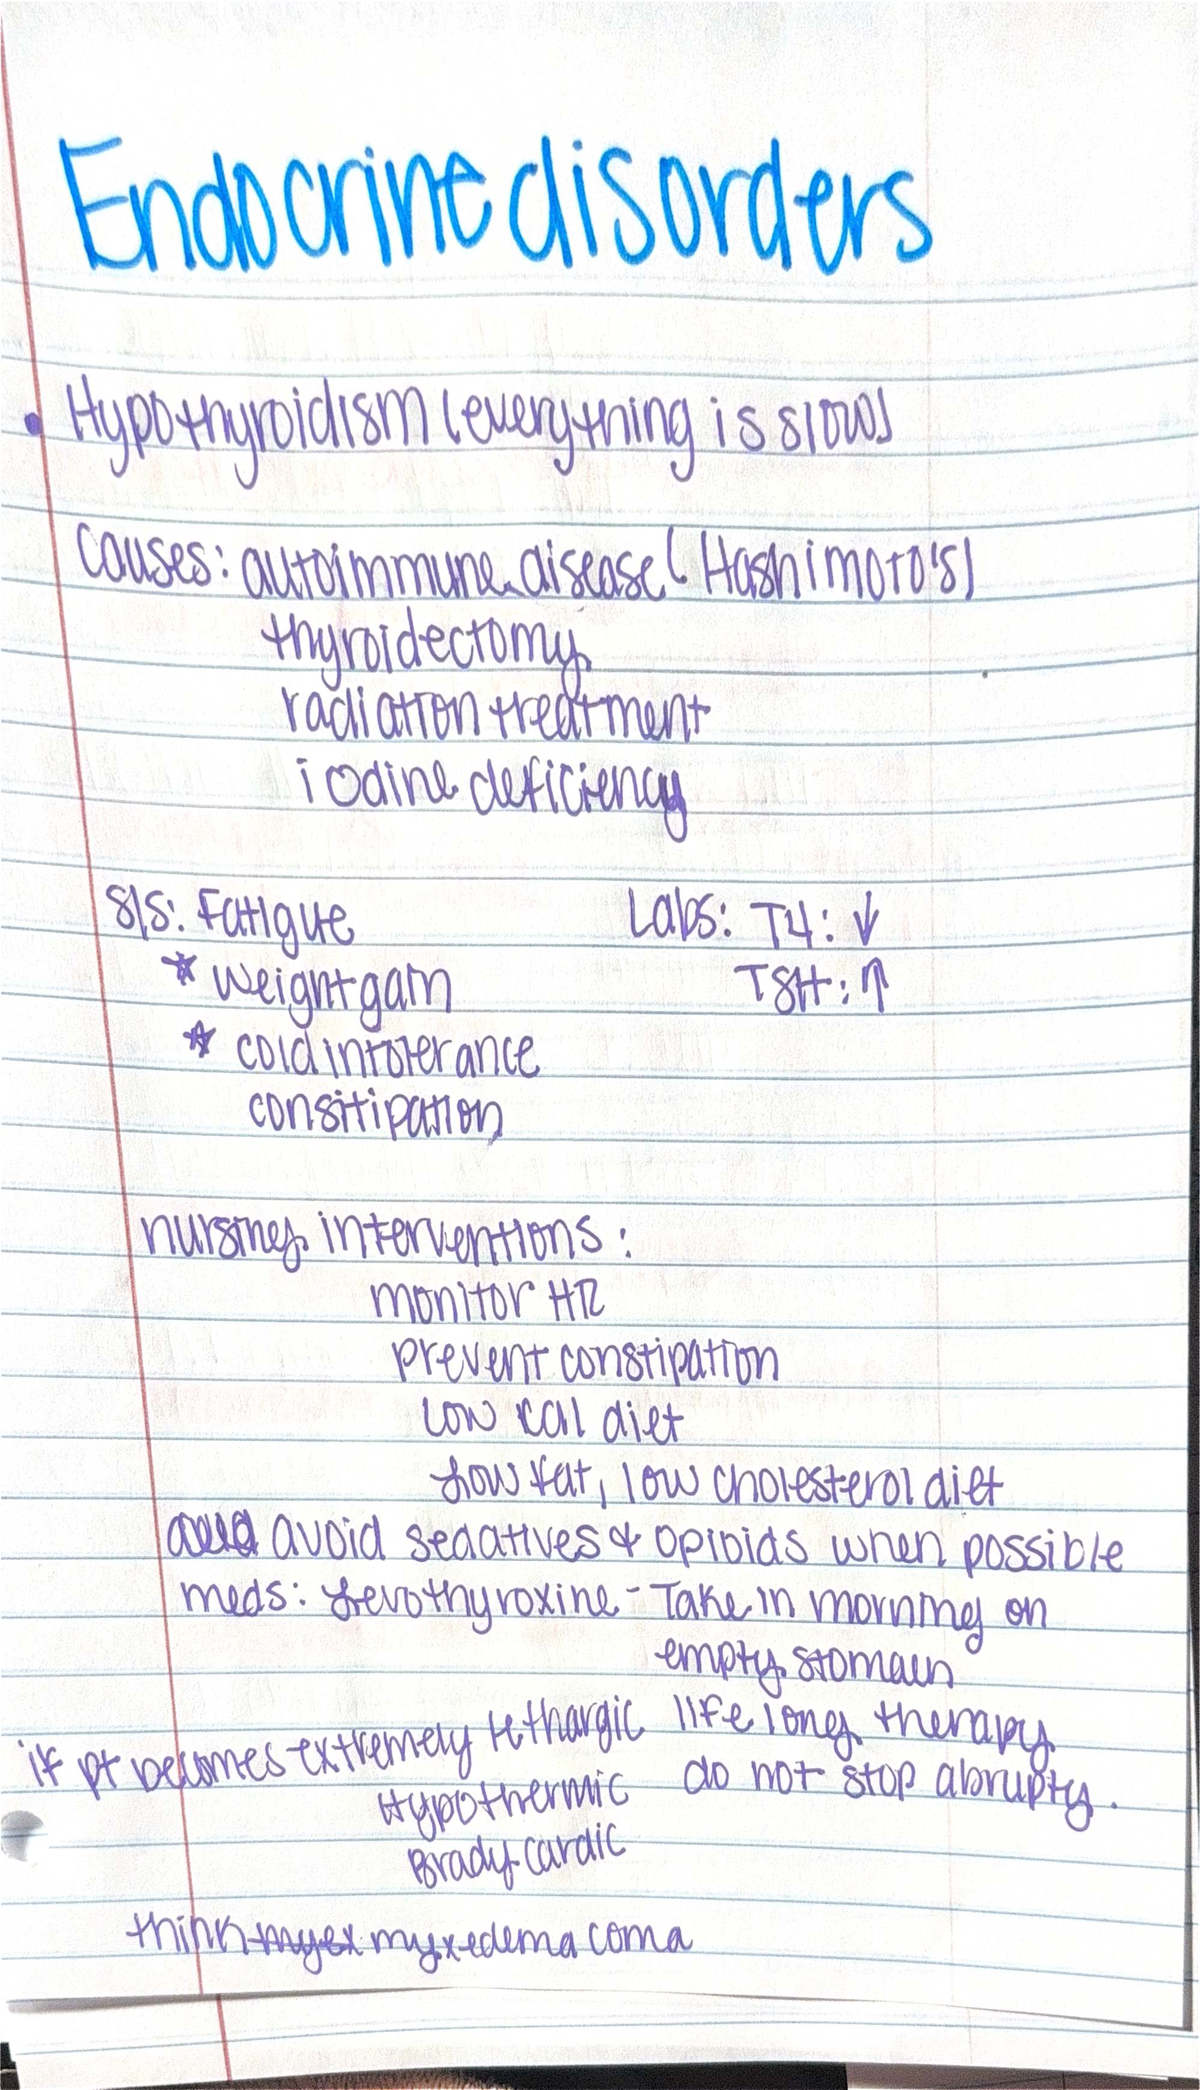 Endocrine disorders
• Hypothyroidism (everything is slow)
causes: autoimmune disease (Hashimoto's)
thyroidectomy
radiation treatment
iodine deficiency
S/S: Fatigue Labs: T4: ↓
* weight gain TSH: ↑
* cold intolerance
consitipation
nursing interventions:
monitor HR
prevent constipation
Low cal diet
Low fat, low cholesterol diet
avoid sedatives & opioids when possible
meds: Levothyroxine - Take in morning on
empty stomach
if pt becomes extremely lethargic life long therapy
Hypothermic do not stop abrupty.
Bradycardic
think myex myxedema coma